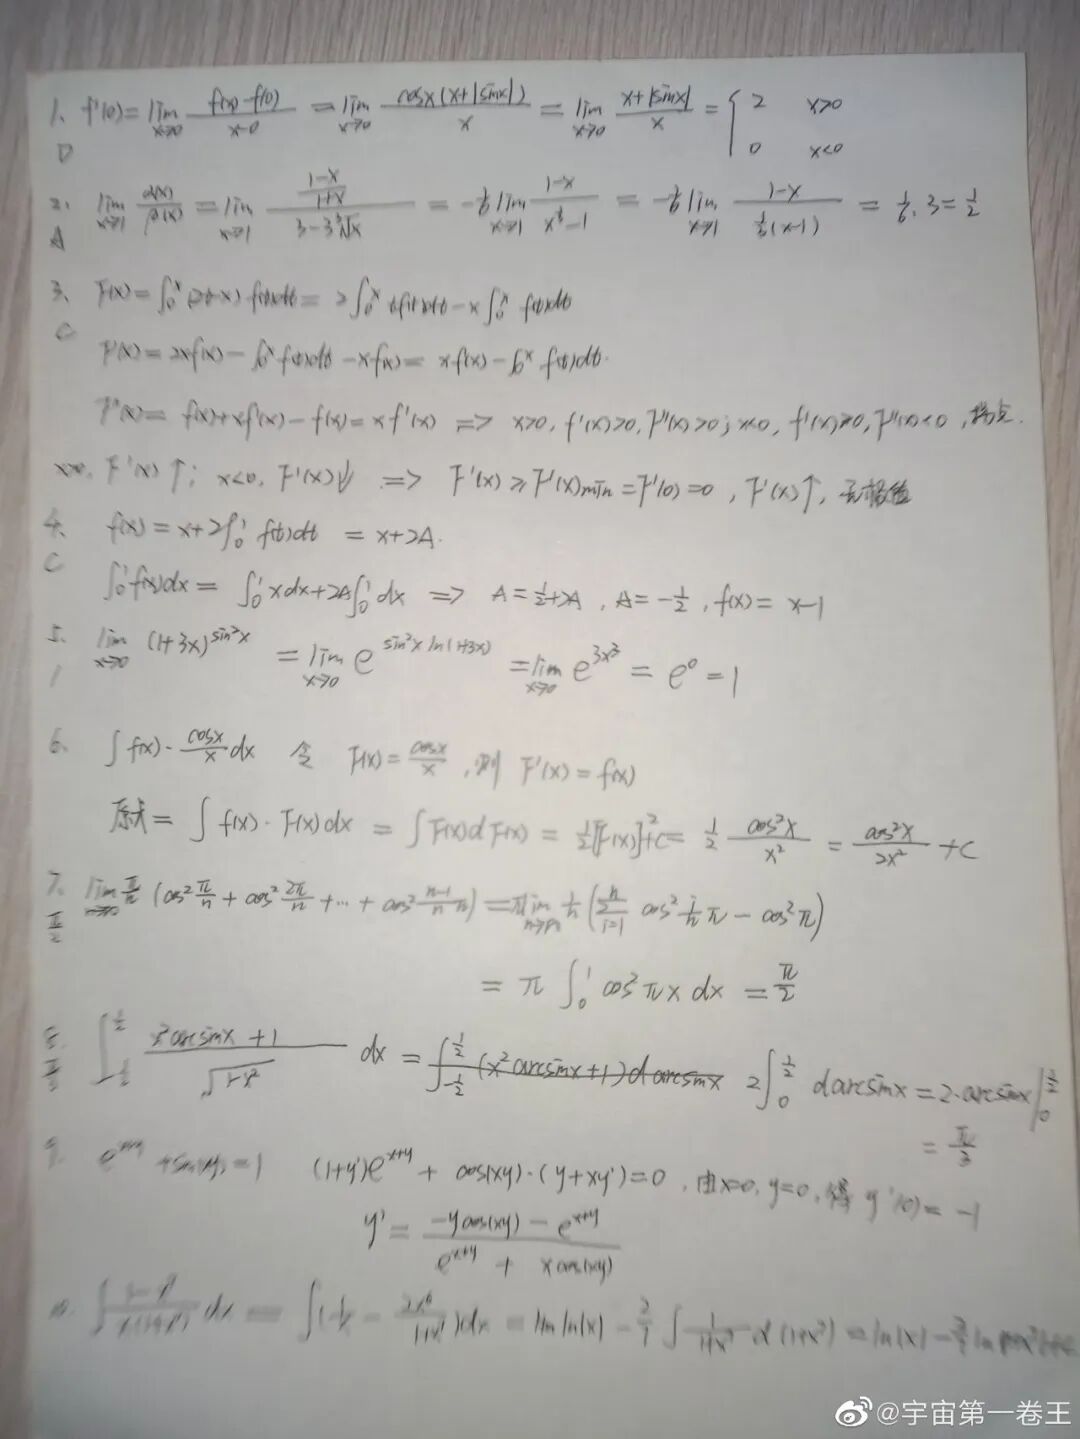 1、 f'(0)=lim x→0 f(x)-f(0)/x-0 = lim x→0 cosx(x+|sinx|)/x = lim x→0 x+|sinx|/x = { 2 x>0
D 0 x<0
2、 lim x→1 α(x)/β(x) = lim x→1 (1-x/1+x)/(3-3∛x) = -1/6 lim x→1 1-x/(x^⅓-1) = -1/6 lim x→1 1-x/(⅓(x-1)) = 1/6·3=1/2
A
3、 F(x)=∫₀ˣ(2t-x)f(t)dt=2∫₀ˣ tf(t)dt-x∫₀ˣ f(t)dt
C
F'(x)=2xf(x)-∫₀ˣf(t)dt-xf(x)=xf(x)-∫₀ˣ f(t)dt.
F''(x)= f(x)+xf'(x)-f(x)=xf'(x) => x>0, f'(x)>0, F''(x)>0; x<0, f'(x)>0, F''(x)<0, 拐点.
x>0, F'(x)↑; x<0, F'(x)↓ => F'(x)≥F'(x)min=F'(0)=0, F(x)↑, 无极值
4、 f(x)=x+2∫₀¹ f(t)dt =x+2A.
C
∫₀¹f(x)dx=∫₀¹xdx+2A∫₀¹dx => A=½+2A, A=-½, f(x)=x-1
5、 lim x→0 (1+3x)^sin²x = lim x→0 e^sin²x ln(1+3x) = lim x→0 e^3x³ = e⁰ =1
1
6、 ∫f(x)·cosx/x dx 令 F(x)=cosx/x, 则 F'(x)=f(x)
原式=∫f(x)·F(x)dx=∫F(x)dF(x)=½[F(x)]²+C=½ cos²x/x² = cos²x/2x² +C
7、 lim n→∞ π/n (cos²π/n+cos²2π/n+…+cos² n-1/n π)=π lim n→∞ 1/n (∑ i=1 n cos² i/n π-cos²π)
π/2
=π∫₀¹cos²πx dx=π/2
8. ∫_{-½}^{½} x²arcsinx+1/√1-x² dx=∫_{-½}^{½}(x²arcsinx+1)d arcsinx 2∫₀^½ darcsinx=2·arcsinx|₀^½
π/3
=π/3
9. e^x+y+sin(xy)=1 (1+y')e^x+y+cos(xy)·(y+xy')=0, 由x=0, y=0, 得 y'(0)=-1
y'= -ycos(xy)-e^x+y / e^x+y+xcos(xy)
10. dx = ∫(1/x-2x⁶/1+x⁷)dx = ln|x|-2/7∫1/1+x⁷ d(1+x⁷)=ln|x|-2/7 ln
@宇宙第一卷王